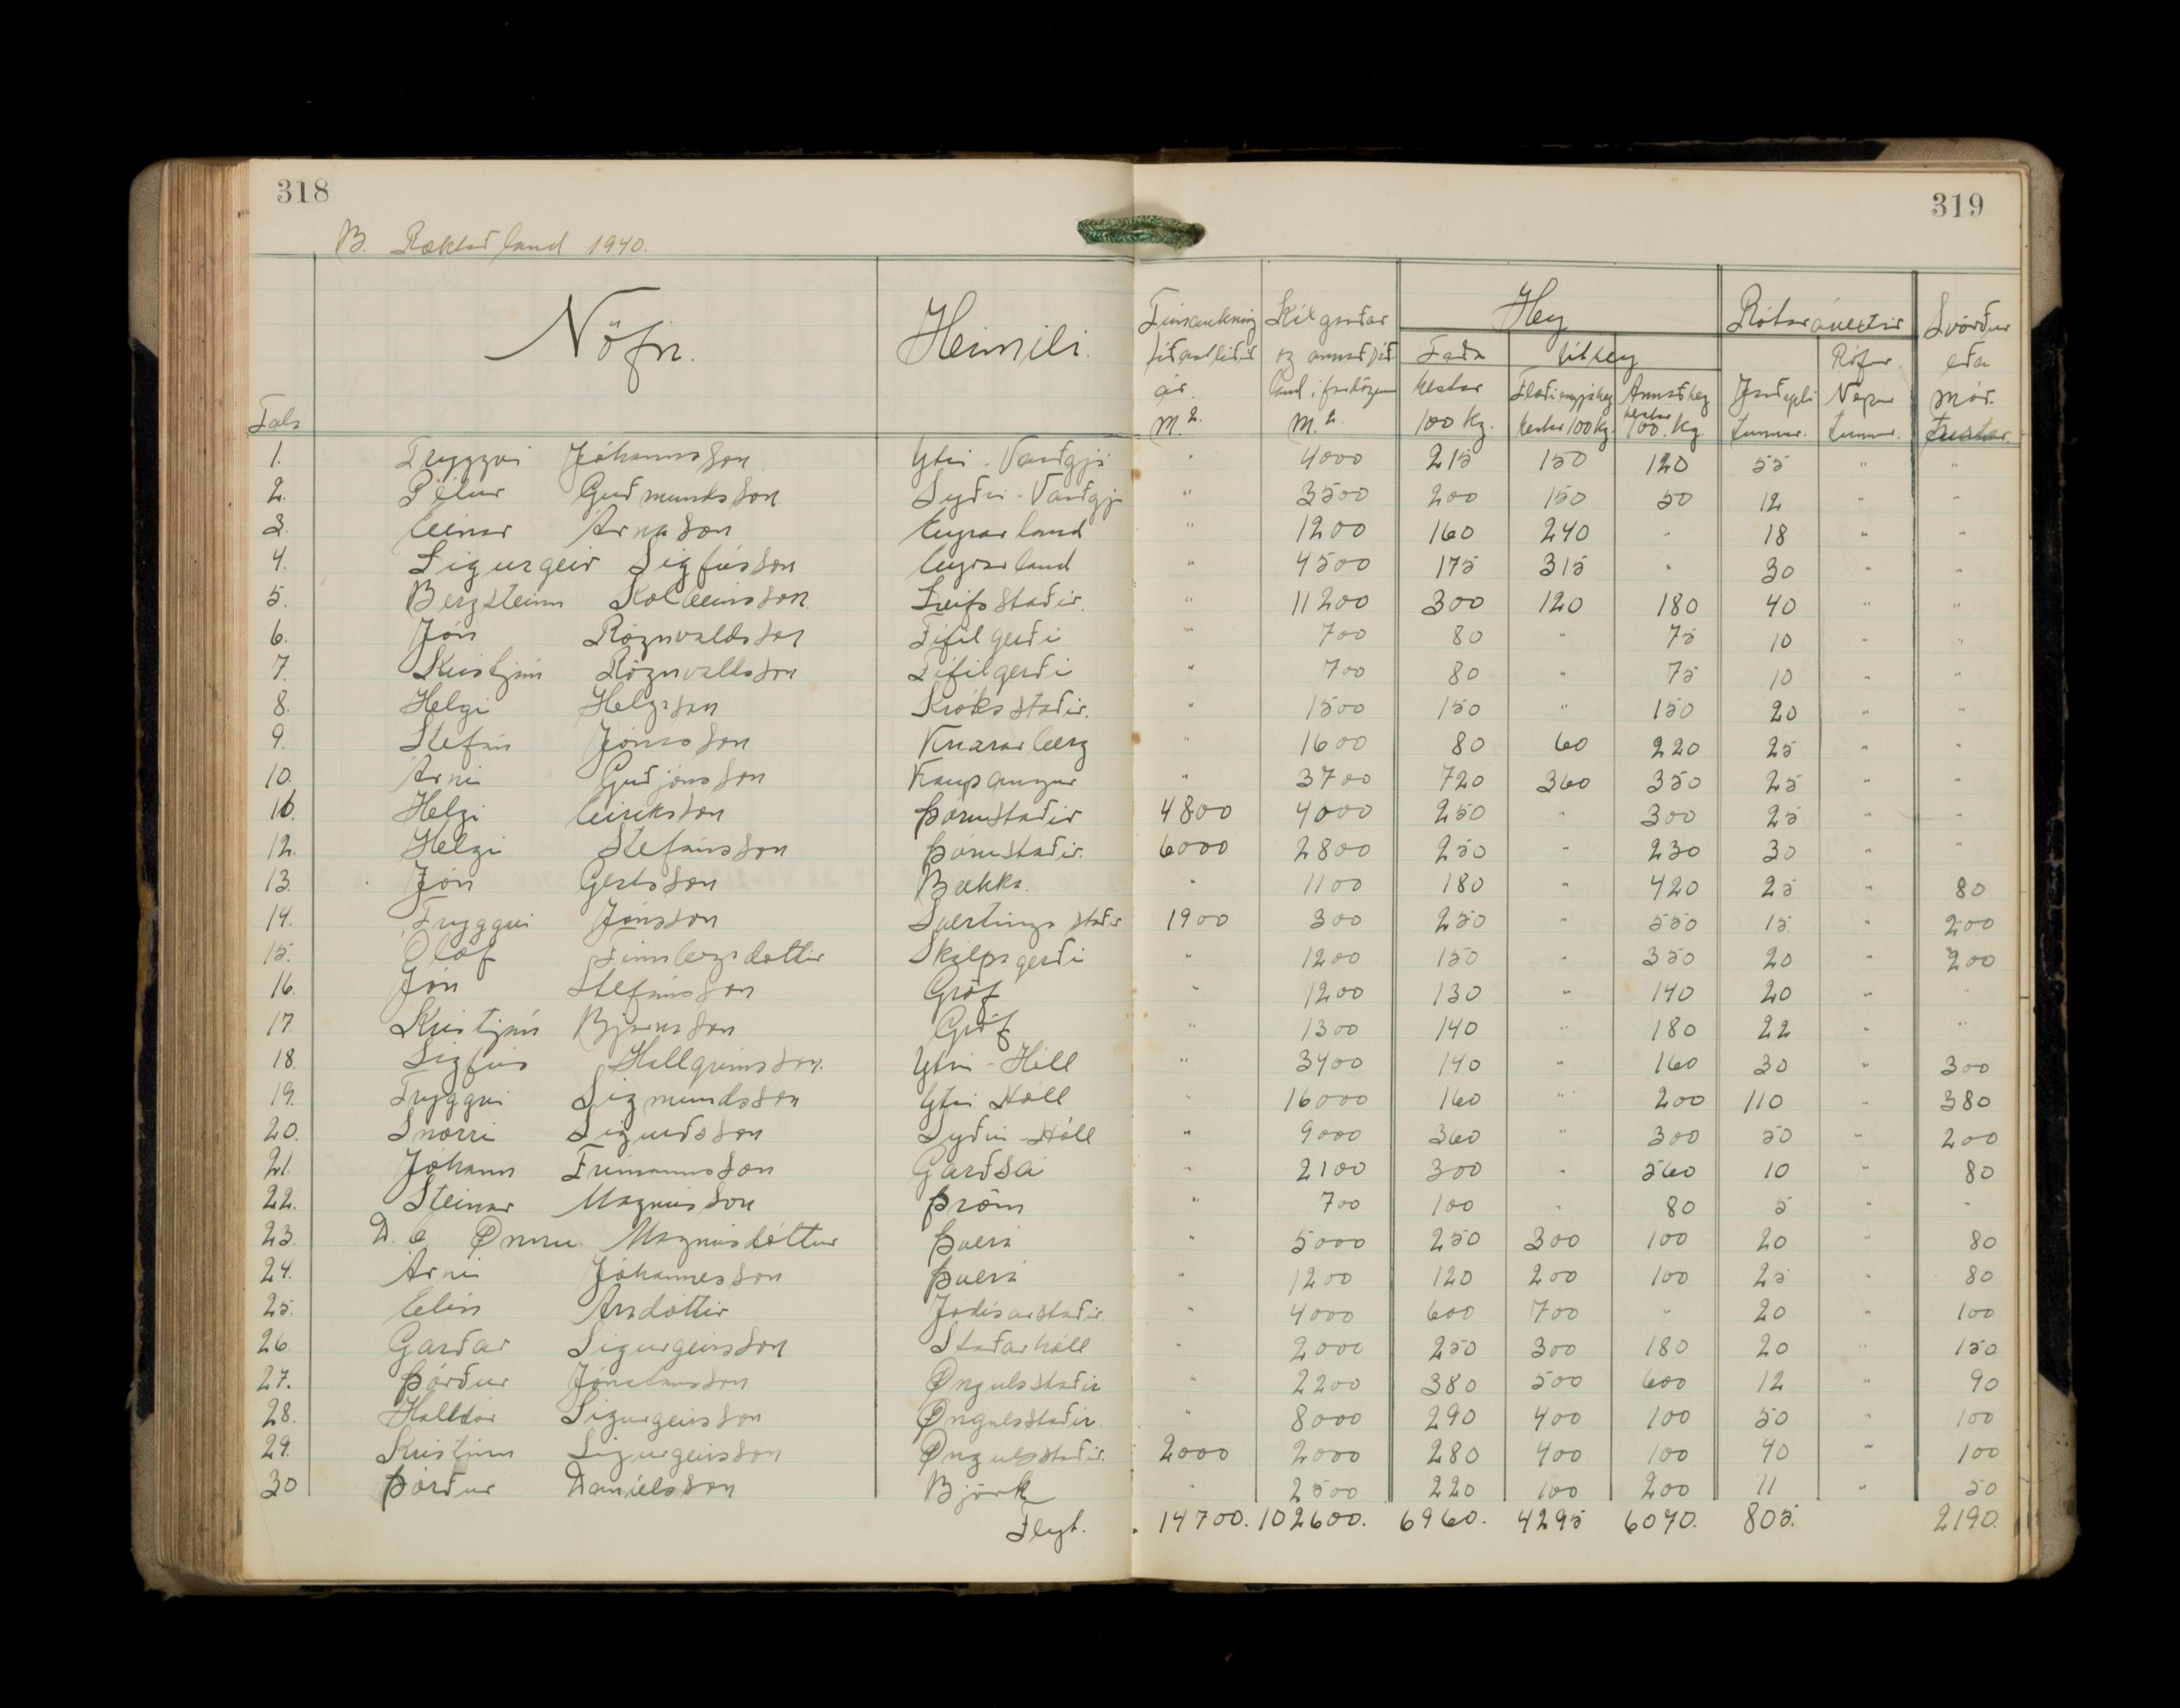 318
319
B. Ræktað land 1940.
Nöfn. Heimili.
Túnaukning síðastliðið ár. m.²
Kálgarðar og annað sáð land í m.²
Hey
Taða hestar 100 kg.
Úthey
Flæðiengjahey hestar 100 kg.
Annað hey hestar 100. kg.
Rótarávextir
Jarðepli tunnur.
Rófur Næpur tunnur.
Svörður eða mór.
Tals
1. Tryggvi Jóhannsson Ytri-Varðgjá " 4000 215 150 120 55 " "
2. Pétur Guðmundsson Syðri-Varðgjá " 3500 200 150 50 12 " "
3. Einar Árnason Eyrarland " 1200 160 240 " 18 " "
4. Sigurgeir Sigfússon Eyrarland " 4500 175 315 " 30 " "
5. Bergsteinn Kolbeinsson Leifsstaðir. " 11200 300 120 180 40 " "
6. Jón Rögnvaldsson Fífilgerði " 700 80 " 75 10 " "
7. Kristján Rögnvaldsson Fífilgerði " 700 80 " 75 10 " "
8. Helgi Helgason Króksstaðir. " 1500 150 " 150 20 " "
9. Stefán Jónsson Knararberg " 1600 80 60 220 25 " "
10. Árni Guðjónsson Kaupangur " 3700 720 360 350 25 " "
11. Helgi Eiríksson Þórustaðir 4800 4000 250 " 300 25 " "
12. Helgi Stefánsson Þórustaðir. 6000 2800 250 " 230 30 " "
13. Jón Gestsson Brekka. " 1100 180 " 420 25 " 80
14. Tryggvi Jónsson Svertingsstaðir 1900 300 250 " 550 15 " 200
15. Ólöf Finnbogadóttir Skálpagerði " 1200 150 " 350 20 " 200
16. Jón Stefánsson Gröf " 1200 130 " 140 20 " "
17. Kristján Bjarnason Gröf " 1300 140 " 180 22 " "
18. Sigfús Hallgrímsson. Ytri-Hóll " 3400 140 " 160 30 " 300
19. Tryggvi Sigmundsson Ytri Hóll " 16000 160 " 200 110 " 380
20. Snorri Sigurðsson Syðri-Hóll " 9000 360 " 300 50 " 200
21. Jóhann Frímannsson Garðsá " 2100 300 " 560 10 " 80
22. Steinar Magnússon Þröm " 700 100 " 80 5 " "
23. D. b Önnu Magnúsdóttur Þverá " 5000 250 300 100 20 " 80
24. Árni Jóhannesson Þverá " 1200 120 200 100 25 " 80
25. Elín Aradóttir Jódísarstaðir. " 4000 600 700 " 20 " 100
26. Garðar Sigurgeirsson Staðarhóll " 2000 250 300 180 20 " 150
27. Þórður Jónatansson Öngulsstaðir " 2200 380 500 600 12 " 90
28. Halldór Sigurgeirsson Öngulsstaðir. " 8000 290 400 100 50 " 100
29. Kristinn Sigurgeirsson Öngulsstaðir. 2000 2000 280 400 100 40 " 100
30 Þórður Daníelsson Björk " 2500 220 100 200 11 " 50
Flyt. 14700. 102600. 6960. 4295 6070. 805. 2190.